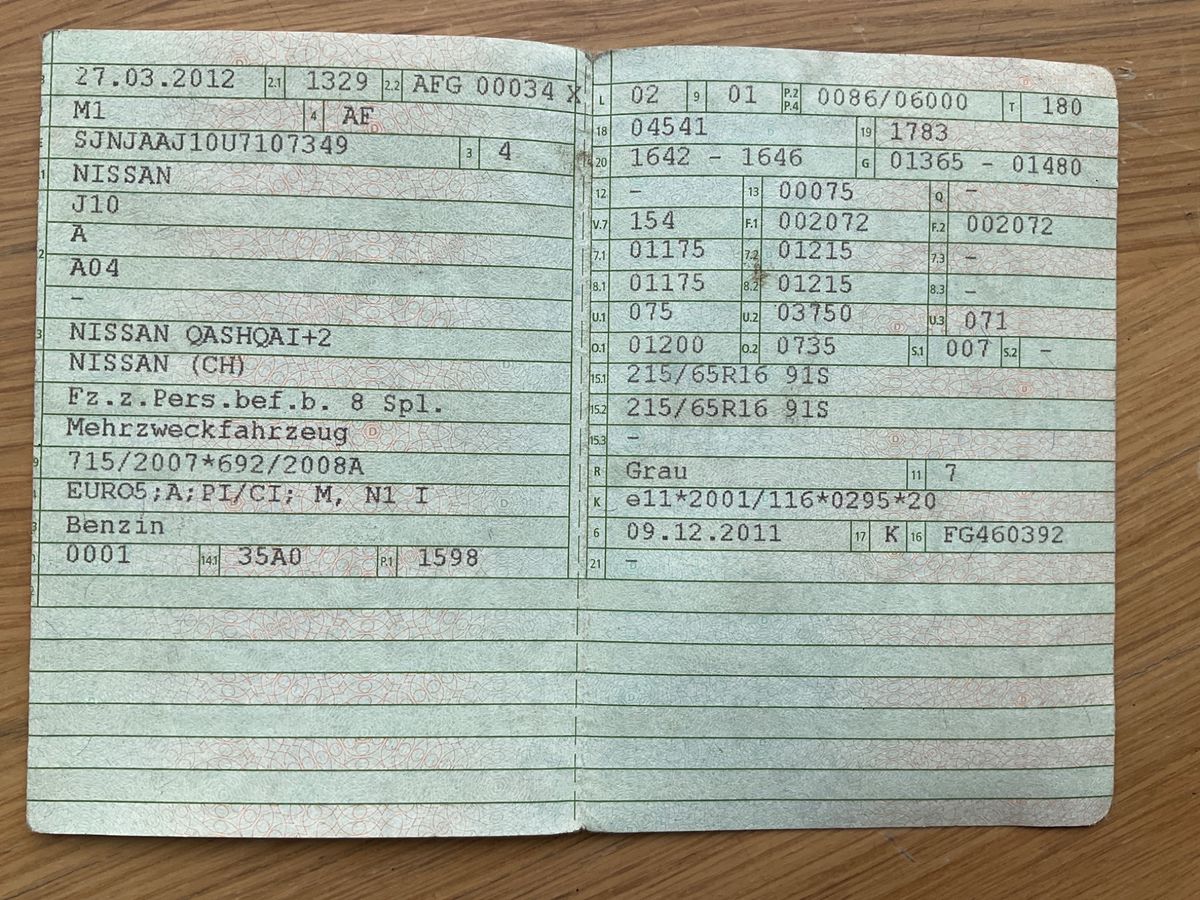 27.03.2012 2.1 1329 2.2 AFG 00034 X
M1 4 AF
SJNJAAJ10U7107349 3 4
NISSAN
J10
A
2
A04
-
3 NISSAN QASHQAI+2
NISSAN (CH)
Fz.z.Pers.bef.b. 8 Spl.
Mehrzweckfahrzeug
9 715/2007*692/2008A
EURO5;A;PI/CI; M, N1 I
3 Benzin
0001 14.1 35A0 P.1 1598
L 02 9 01 P.2 P.4 0086/06000 T 180
18 04541 19 1783
20 1642 - 1646 G 01365 - 01480
12 - 13 00075 Q -
V.7 154 F.1 002072 F.2 002072
7.1 01175 7.2 01215 7.3 -
8.1 01175 8.2 01215 8.3 -
U.1 075 U.2 03750 U.3 071
O.1 01200 O.2 0735 S.1 007 S.2 -
15.1 215/65R16 91S
15.2 215/65R16 91S
15.3 -
R Grau 11 7
K e11*2001/116*0295*20
6 09.12.2011 17 K 16 FG460392
21 -